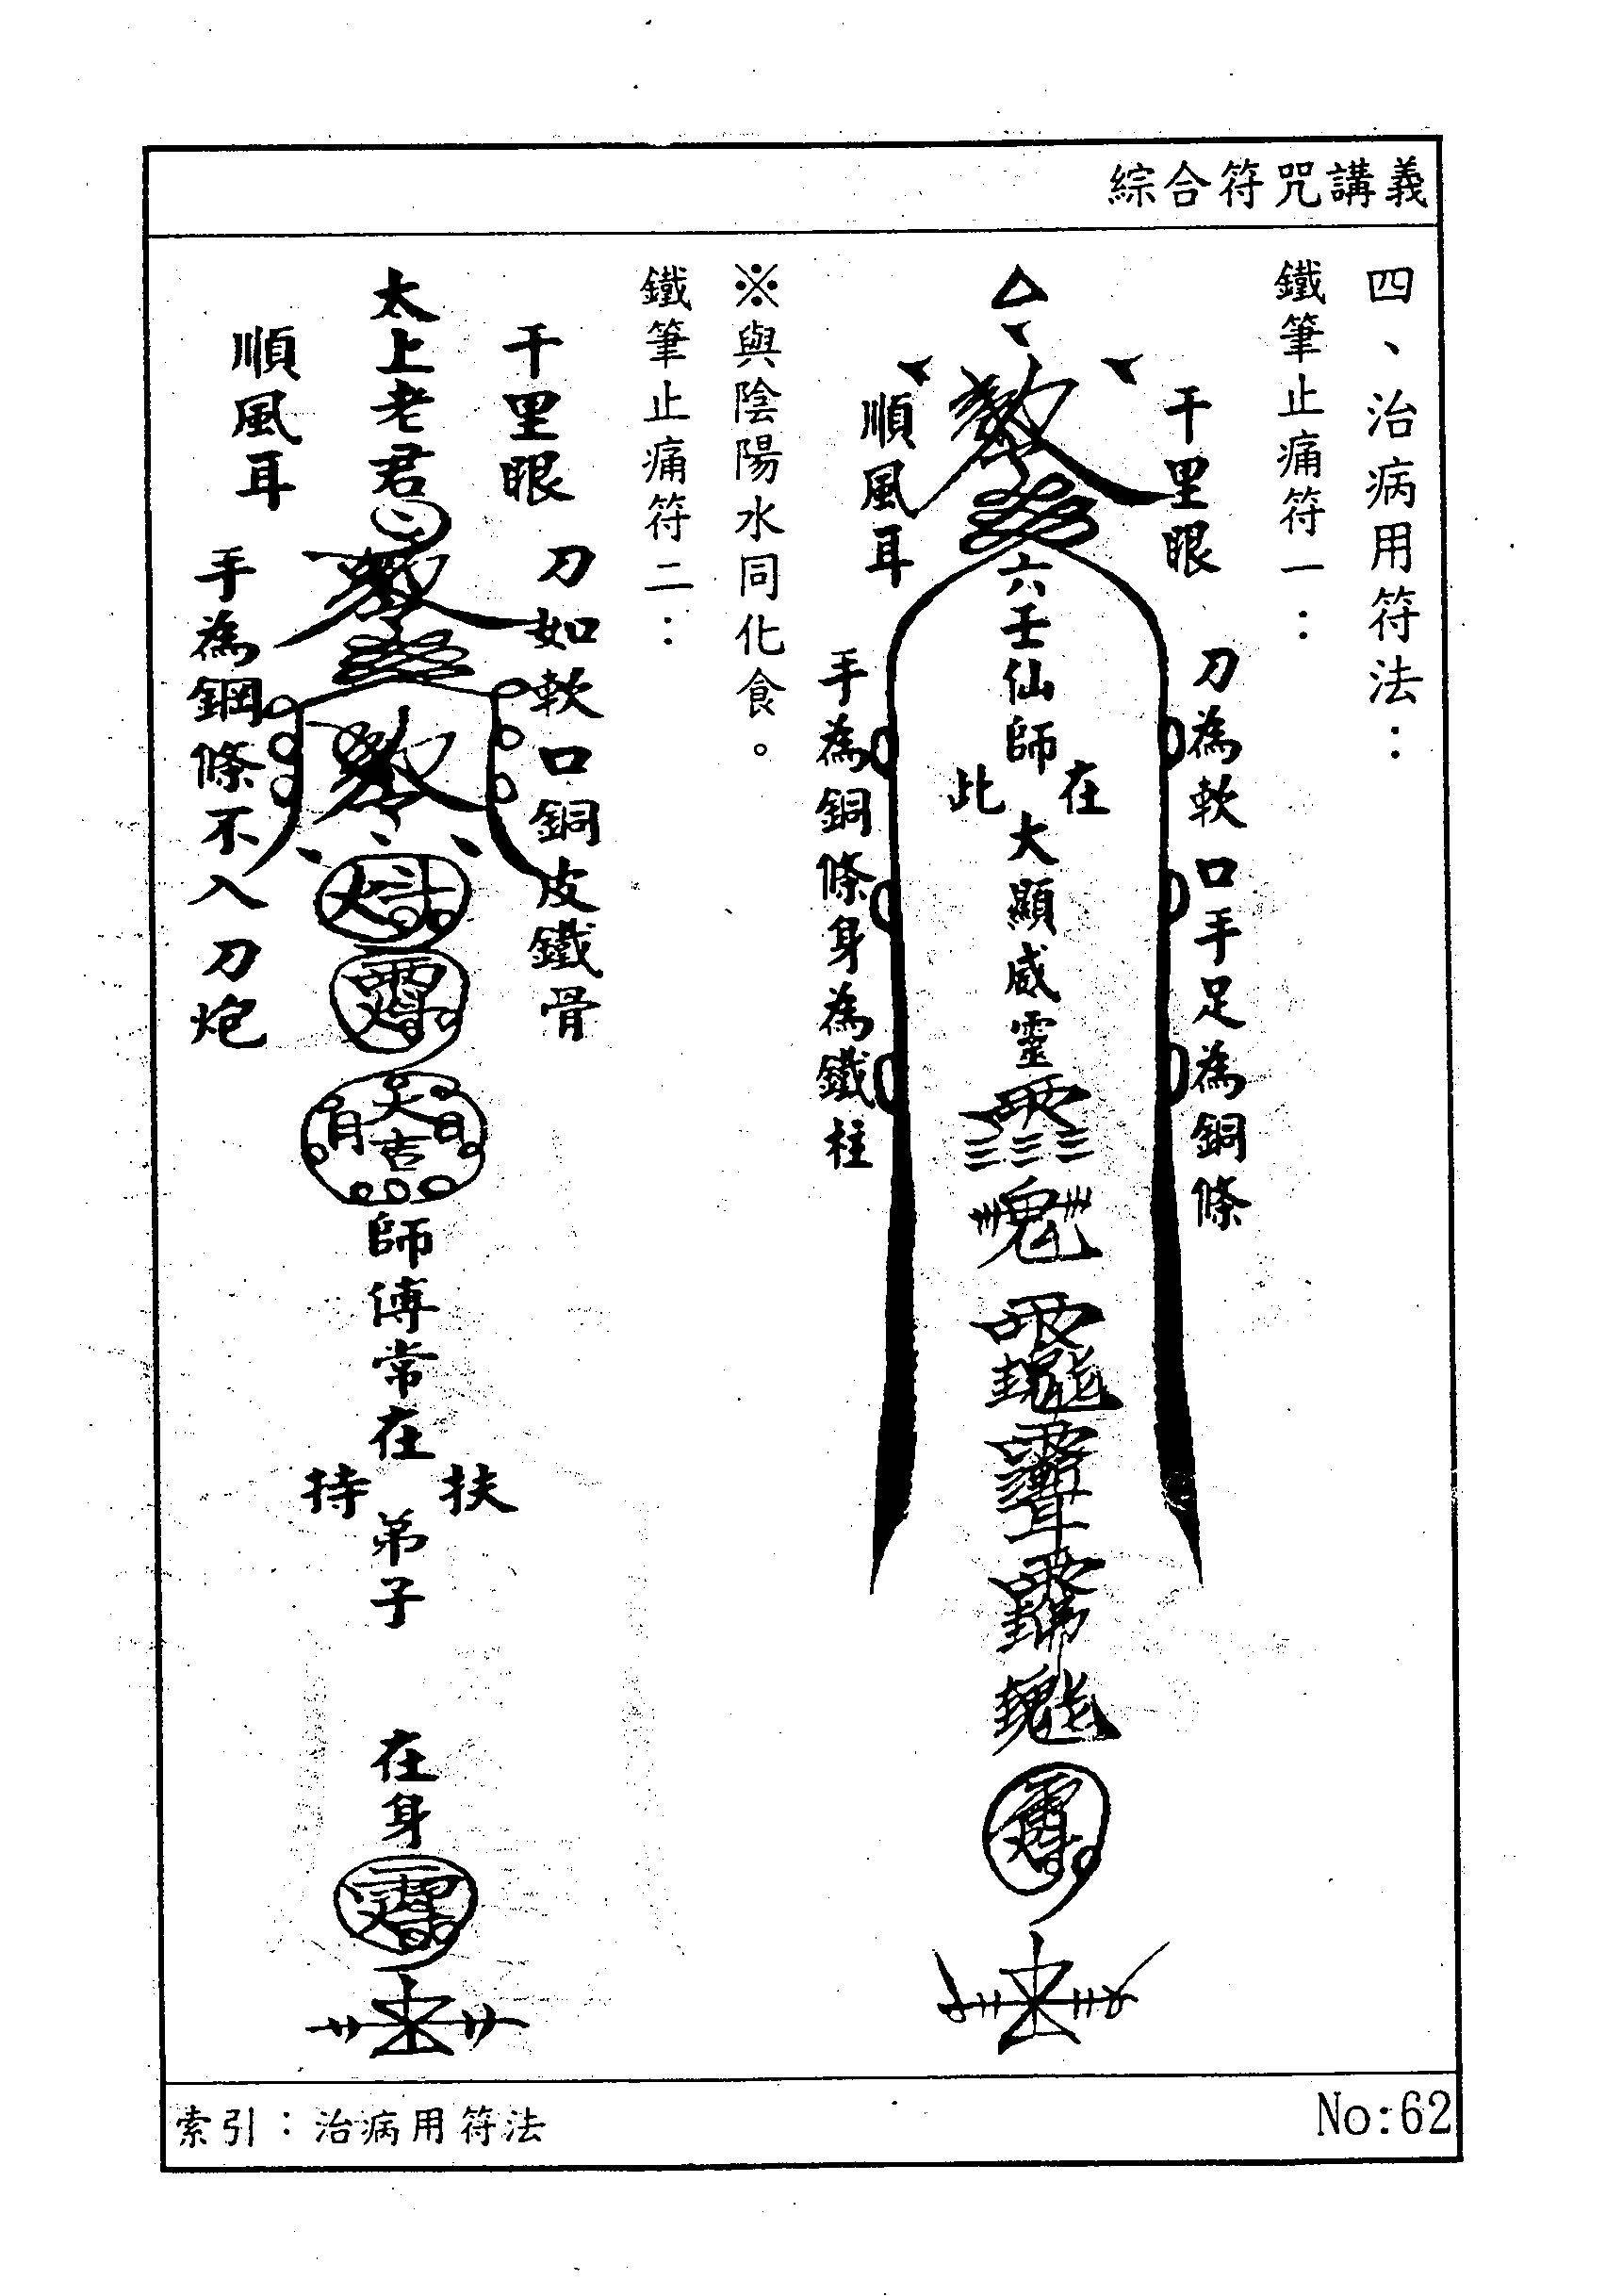 綜合符咒講義
四、治病用符法：
鐵筆止痛符一：
千里眼
刀為軟口手足為銅條
六壬仙師在此大顯威靈
順風耳
手為銅條身為鐵柱
※與陰陽水同化食。
鐵筆止痛符二：
千里眼
刀如軟口銅皮鐵骨
太上老君
師傅常在扶持弟子
在身
順風耳
手為鋼條不入刀炮
索引：治病用符法
No:62